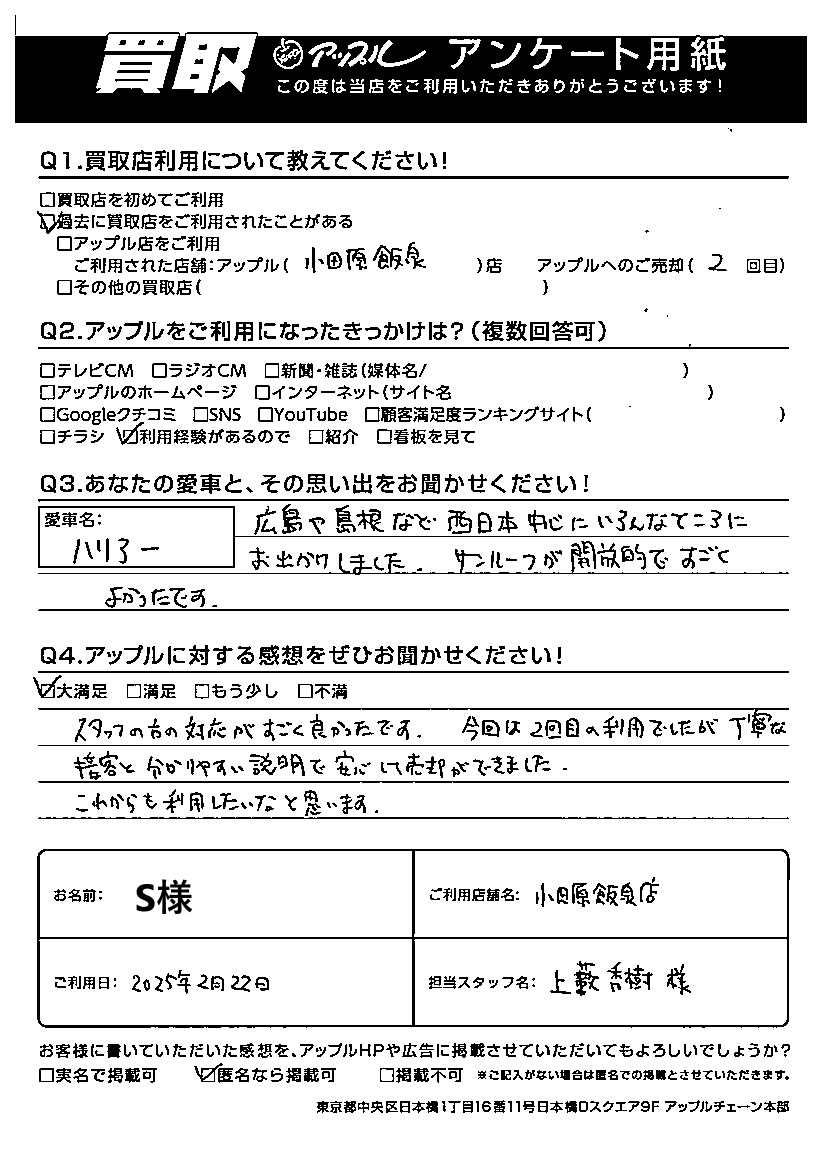 買取 アップル アンケート用紙
この度は当店をご利用いただきありがとうございます!
Q1.買取店利用について教えてください!
□買取店を初めてご利用
☑過去に買取店をご利用されたことがある
□アップル店をご利用
ご利用された店舗:アップル( 小田原飯泉 )店 アップルへのご売却( 2 回目)
□その他の買取店( )
Q2.アップルをご利用になったきっかけは?(複数回答可)
□テレビCM □ラジオCM □新聞・雑誌(媒体名/ )
□アップルのホームページ □インターネット(サイト名 )
□Googleクチコミ □SNS □YouTube □顧客満足度ランキングサイト( )
□チラシ ☑利用経験があるので □紹介 □看板を見て
Q3.あなたの愛車と、その思い出をお聞かせください!
愛車名:
ハリアー
広島や島根など西日本中心にいろんなところに
お出かけしました。 サンルーフが開放的ですごく
よかったです。
Q4.アップルに対する感想をぜひお聞かせください!
☑大満足 □満足 □もう少し □不満
スタッフの方の対応がすごく良かったです。 今回は2回目の利用でしたが丁寧な
接客と分かりやすい説明で安心して売却ができました。
これからも利用したいなと思います。
お名前: S様 ご利用店舗名: 小田原飯泉店
ご利用日: 2025年2月22日 担当スタッフ名: 上藪 秀樹 様
お客様に書いていただいた感想を、アップルHPや広告に掲載させていただいてもよろしいでしょうか?
□実名で掲載可 ☑匿名なら掲載可 □掲載不可 ※ご記入がない場合は匿名での掲載とさせていただきます。
東京都中央区日本橋1丁目16番11号日本橋Dスクエア9F アップルチェーン本部